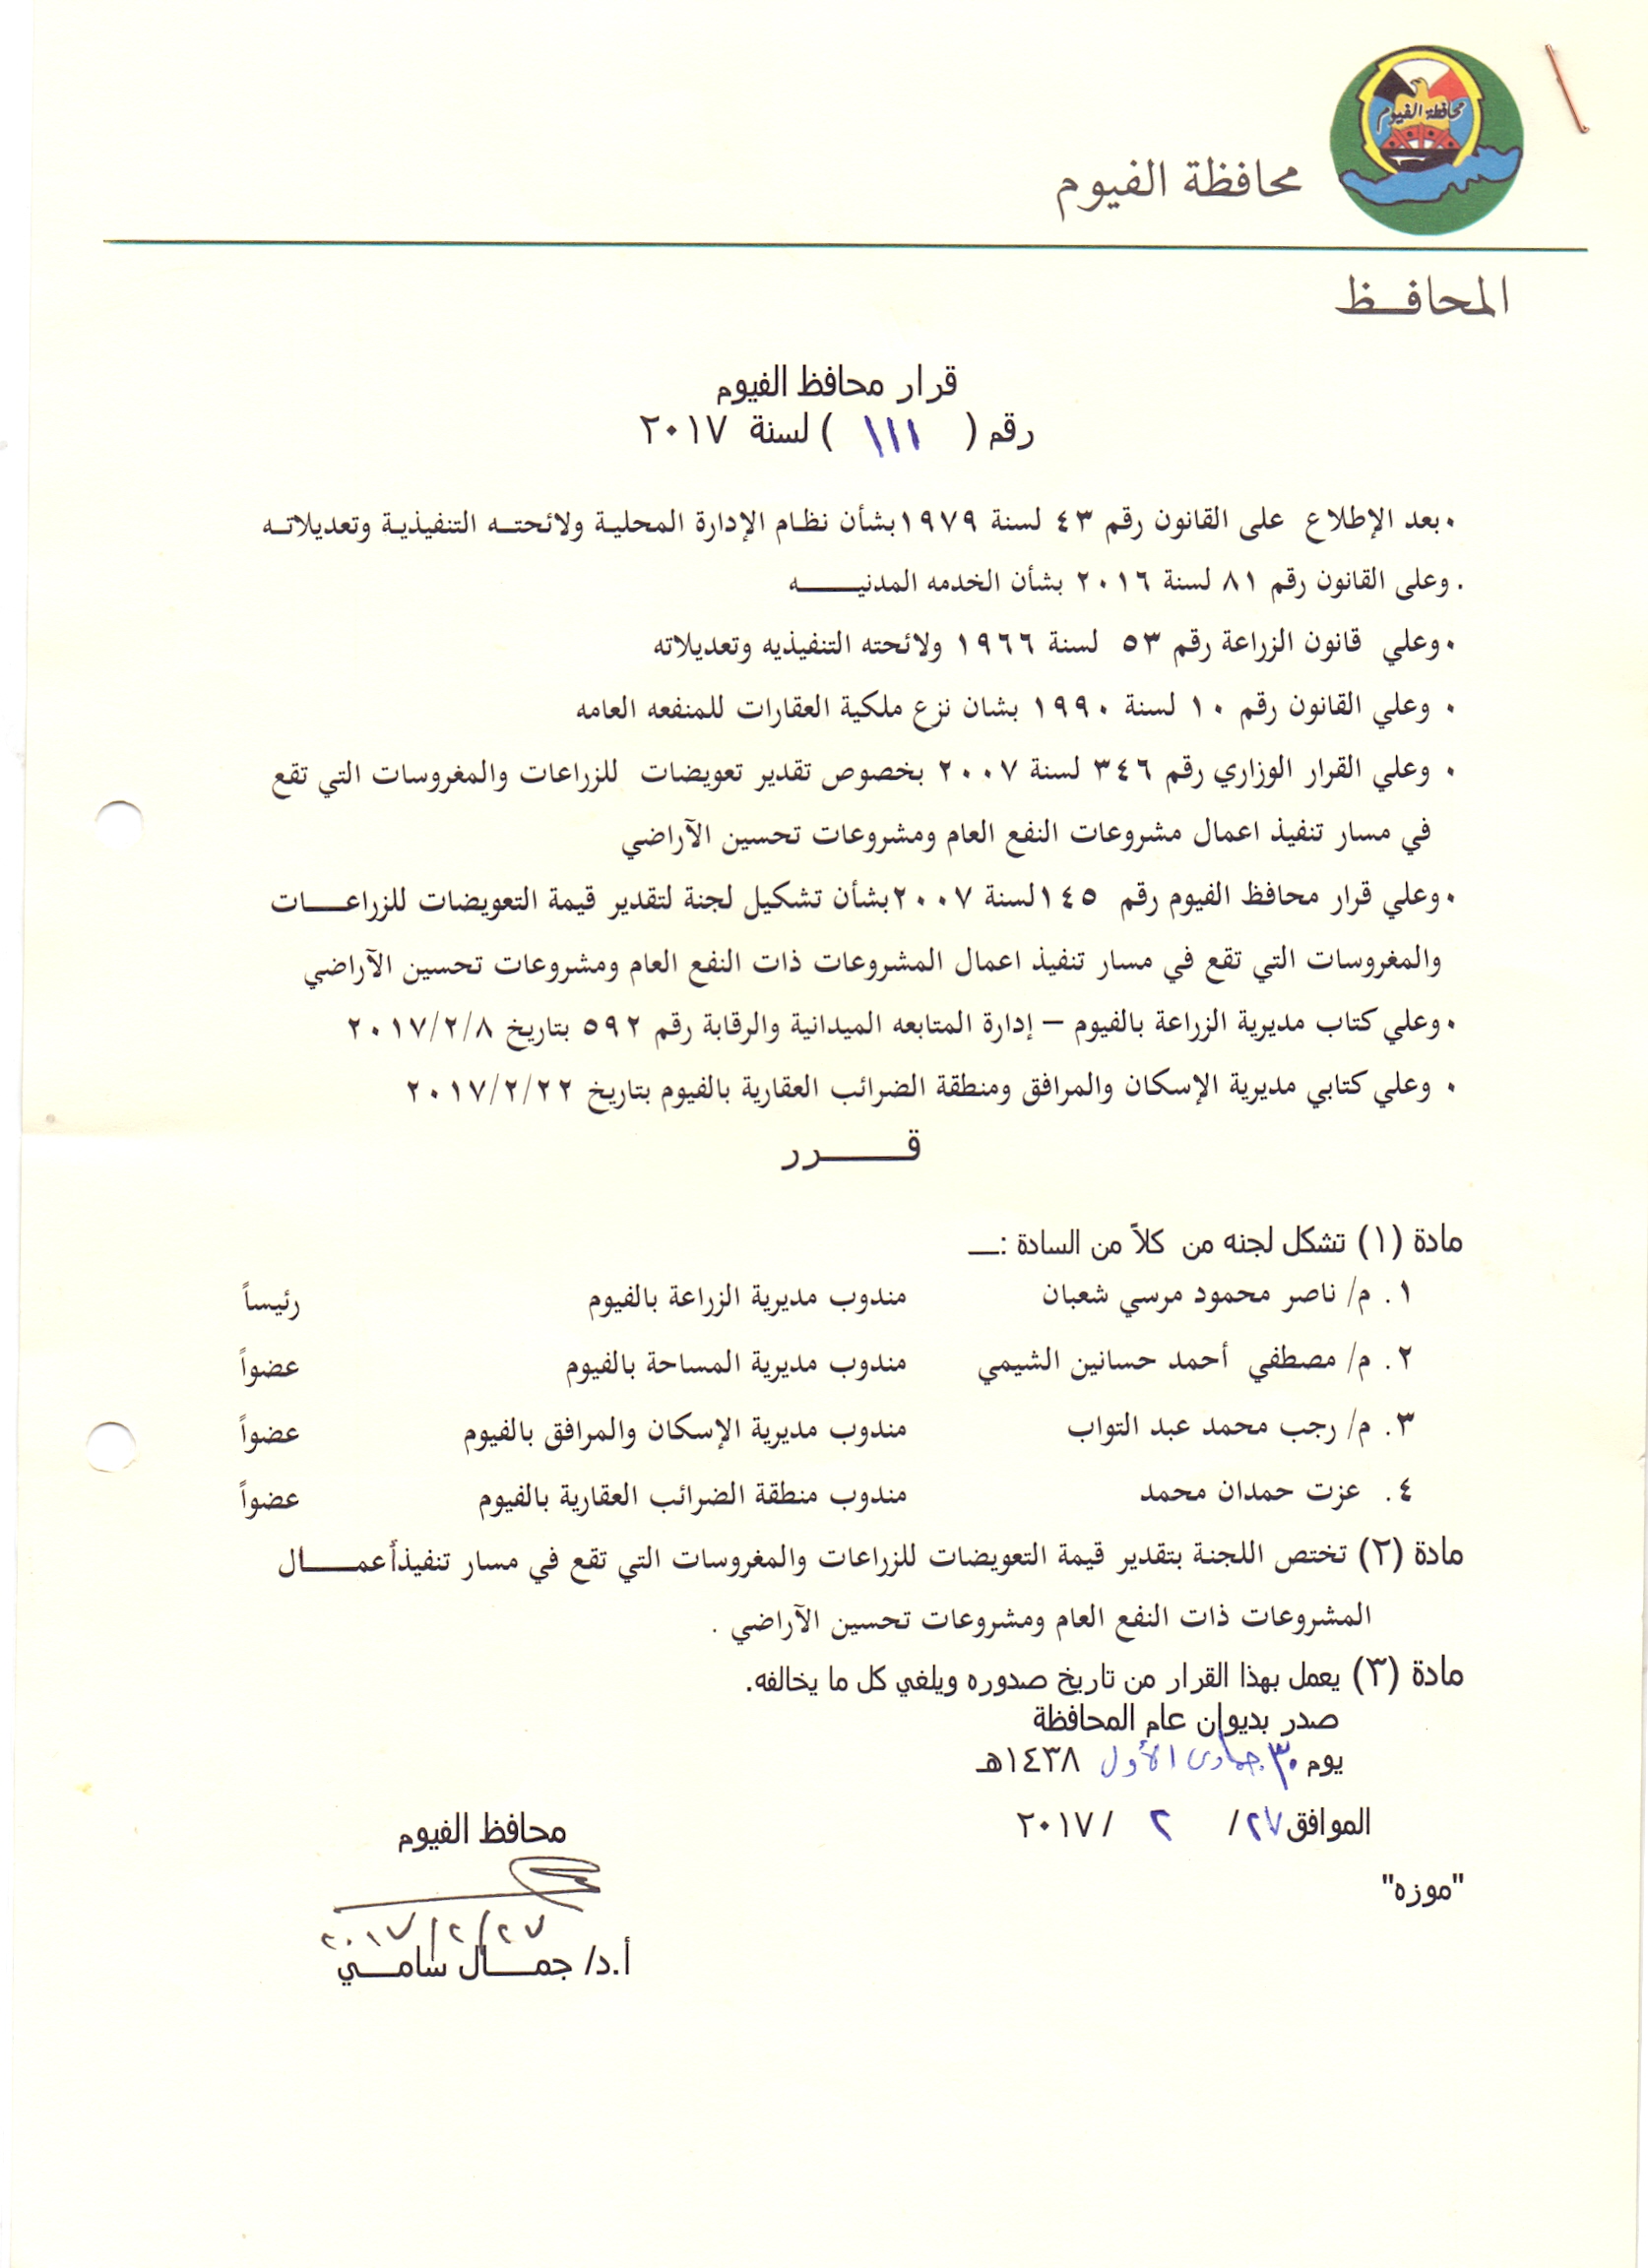 محافظة الفيوم
محافظة الفيوم
المحافـــظ
قرار محافظ الفيوم
رقم ( ١١١ ) لسنة ٢٠١٧
• بعد الإطلاع على القانون رقم ٤٣ لسنة ١٩٧٩ بشأن نظام الإدارة المحلية ولائحته التنفيذية وتعديلاته
. وعلى القانون رقم ٨١ لسنة ٢٠١٦ بشأن الخدمه المدنيـــــه
• وعلي قانون الزراعة رقم ٥٣ لسنة ١٩٦٦ ولائحته التنفيذيه وتعديلاته
• وعلي القانون رقم ١٠ لسنة ١٩٩٠ بشان نزع ملكية العقارات للمنفعه العامه
• وعلي القرار الوزاري رقم ٣٤٦ لسنة ٢٠٠٧ بخصوص تقدير تعويضات للزراعات والمغروسات التي تقع
في مسار تنفيذ اعمال مشروعات النفع العام ومشروعات تحسين الآراضي
• وعلي قرار محافظ الفيوم رقم ١٤٥ لسنة ٢٠٠٧ بشأن تشكيل لجنة لتقدير قيمة التعويضات للزراعـــات
والمغروسات التي تقع في مسار تنفيذ اعمال المشروعات ذات النفع العام ومشروعات تحسين الآراضي
• وعلي كتاب مديرية الزراعة بالفيوم – إدارة المتابعه الميدانية والرقابة رقم ٥٩٢ بتاريخ ٢٠١٧/٢/٨
• وعلي كتابي مديرية الإسكان والمرافق ومنطقة الضرائب العقارية بالفيوم بتاريخ ٢٠١٧/٢/٢٢
قـــــرر
مادة (١) تشكل لجنه من كلاً من السادة :ــ
١. م/ ناصر محمود مرسي شعبان مندوب مديرية الزراعة بالفيوم رئيساً
٢. م/ مصطفي أحمد حسانين الشيمي مندوب مديرية المساحة بالفيوم عضواً
٣. م/ رجب محمد عبد التواب مندوب مديرية الإسكان والمرافق بالفيوم عضواً
٤. عزت حمدان محمد مندوب منطقة الضرائب العقارية بالفيوم عضواً
مادة (٢) تختص اللجنة بتقدير قيمة التعويضات للزراعات والمغروسات التي تقع في مسار تنفيذأعمـــال
المشروعات ذات النفع العام ومشروعات تحسين الآراضي .
مادة (٣) يعمل بهذا القرار من تاريخ صدوره ويلغي كل ما يخالفه.
صدر بديوان عام المحافظة
يوم ٣٠ جمادى الأول ١٤٣٨هـ
الموافق ٢٧/ ٢ / ٢٠١٧
محافظ الفيوم
"موزه"
٢٠١٧/٢/٢٧
أ.د/ جمـــال سامـــي